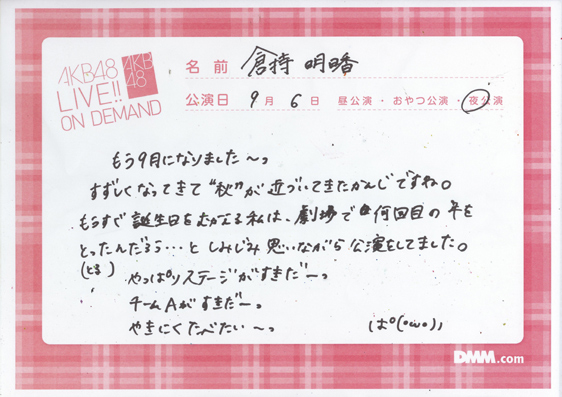 AKB48
LIVE!!
ON DEMAND
AKB
48
名前 倉持明日香
公演日 9月6日 昼公演・おやつ公演・夜公演
もう9月になりました〜っ
すずしくなってきて"秋"が近づいてきたかんじですね。
もうすぐ誕生日をむかえる私は、劇場で何回目の年を
とったんだろう…としみじみ思いながら公演をしてました。
(とる)
やっぱりステージがすきだーっ
チームAがすきだーっ
やきにくたべたい〜っ
ぱ°(・ω・)」
DMM.com